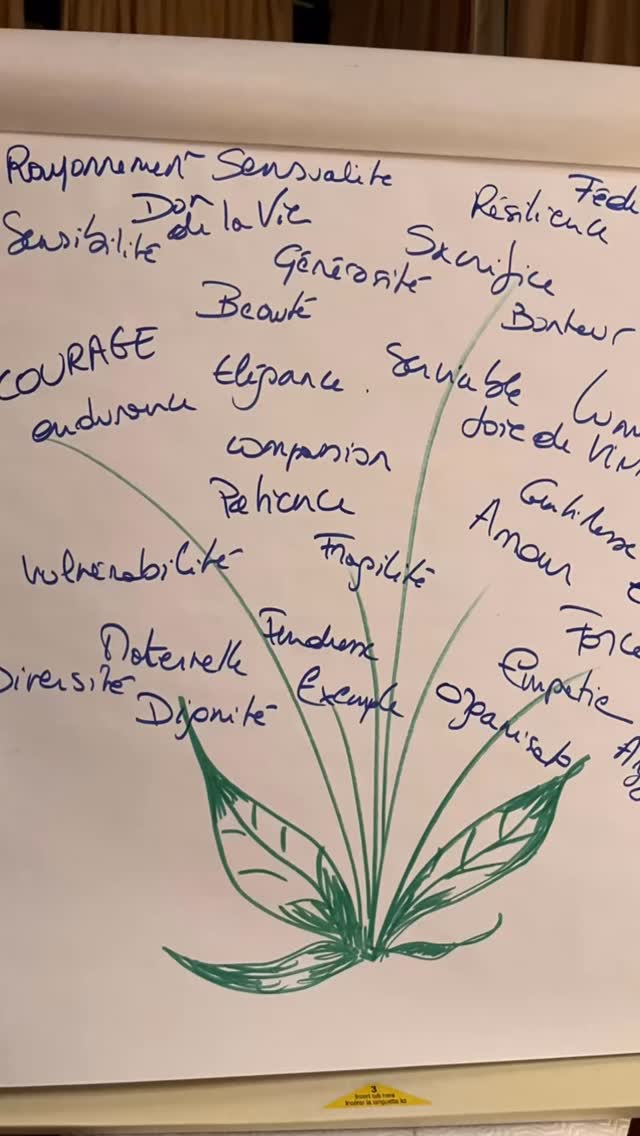 Rayonnement Sensualité
Don
de la Vie
Sensibilité
Résilience
Sacrifice
Générosité
Beauté
Bonheur
COURAGE
Elégance.
Serviable
endurance
Joie de
compassion
Patience
Gentillesse
Amour
Vulnérabilité
Fragilité
Force
Tendresse
Maternelle
Empatie
Diversité
Dignité
Exemple
3
Insert tab here
Insérer la languette ici